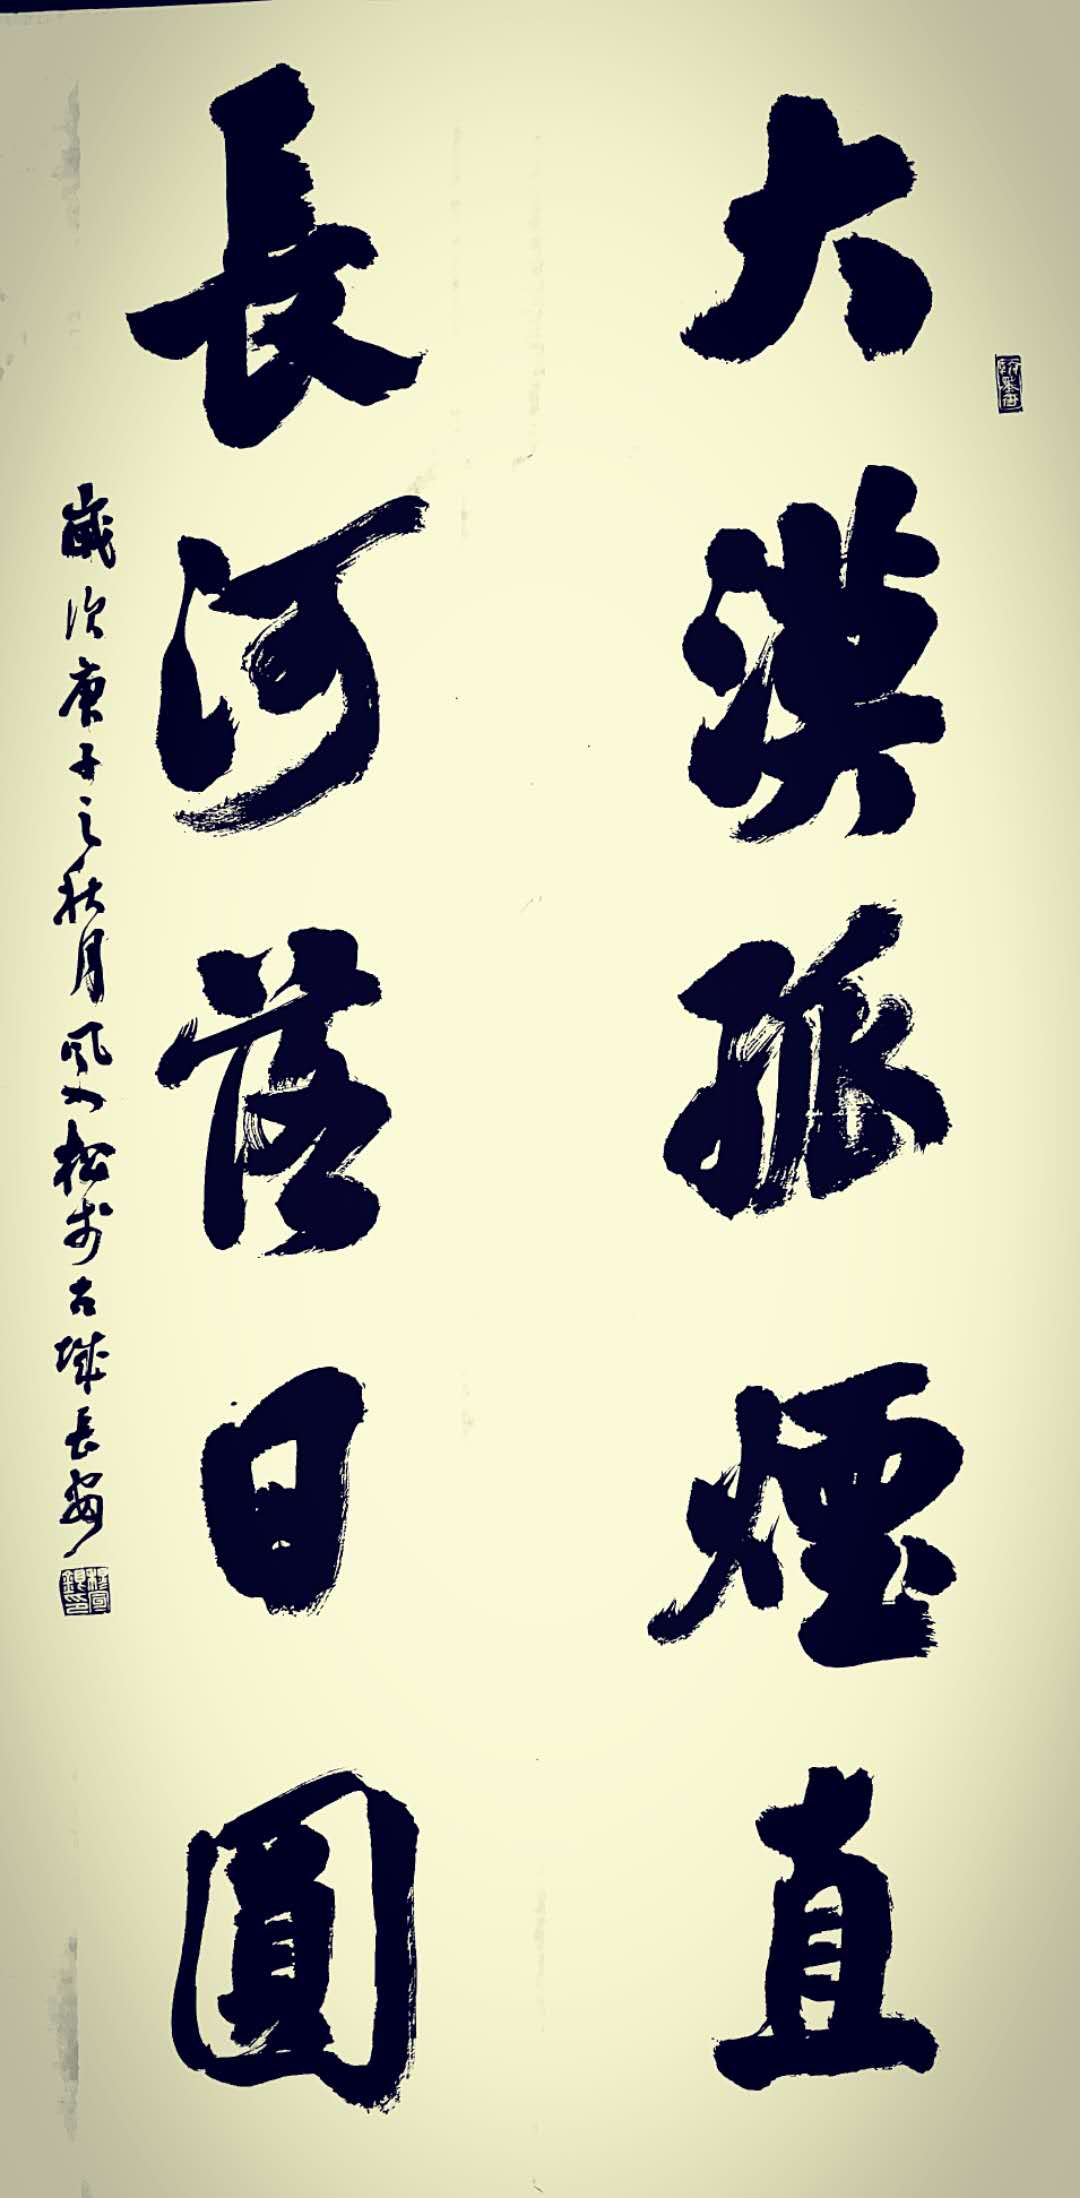 大漠孤煙直
長河落日圓
歲次庚子之秋月風入松於古城長安